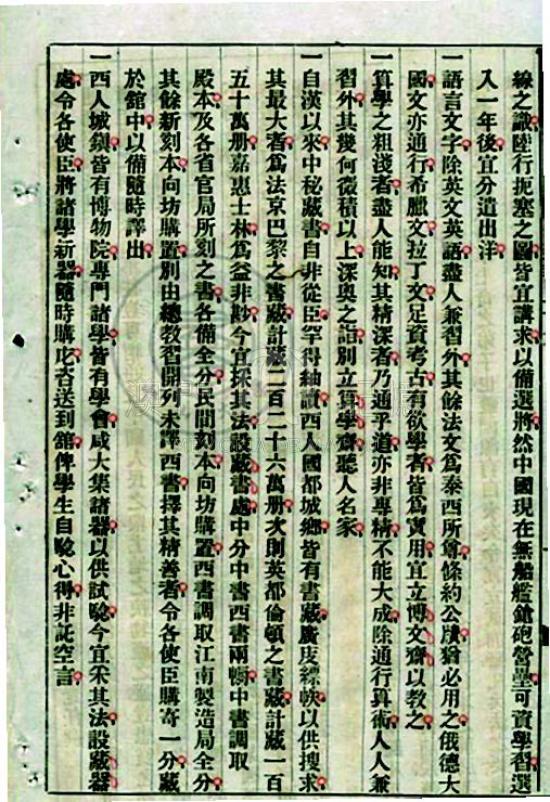 線之識陸行扼塞之圖皆宜講求以備選將然中國現在無船艦鎗砲營壘可資學習選
入一年後宜分遣出洋
一語言文字除英文英語盡人兼習外其餘法文爲泰西所尊條約公牘猶必用之俄德大
國文亦通行希臘文拉丁文足資考古有欲學者皆爲實用宜立博文齋以教之
一算學之粗淺者盡人能知其精深者乃通乎道亦非專精不能大成除通行算術人人兼
習外其幾何微積以上深奧之詣別立算學齋聽人名家
一自漢以來中秘藏書自非從臣罕得紬讀西人國都城鄉皆有書藏廣庋縹帙以供搜求
其最大者爲法京巴黎之書藏計藏二百二十六萬册次則英都倫頓之書藏計藏一百
五十萬册嘉惠士林爲益非尠今宜採其法設藏書處中分中書西書兩幬中書調取
殿本及各省官局所刻之書各備全分民間刻本向坊購置西書調取江南製造局全分
其餘新刻本向坊購置別由總教習開列未譯西書擇其精善者令各使臣購寄一分藏
於舘中以備隨時譯出
一西人城鎭皆有博物院專門諸學皆有學會咸大集諸器以供試驗今宜采其法設藏器
處令各使臣將諸學新器隨時購咨送到舘俾學生自驗心得非託空言